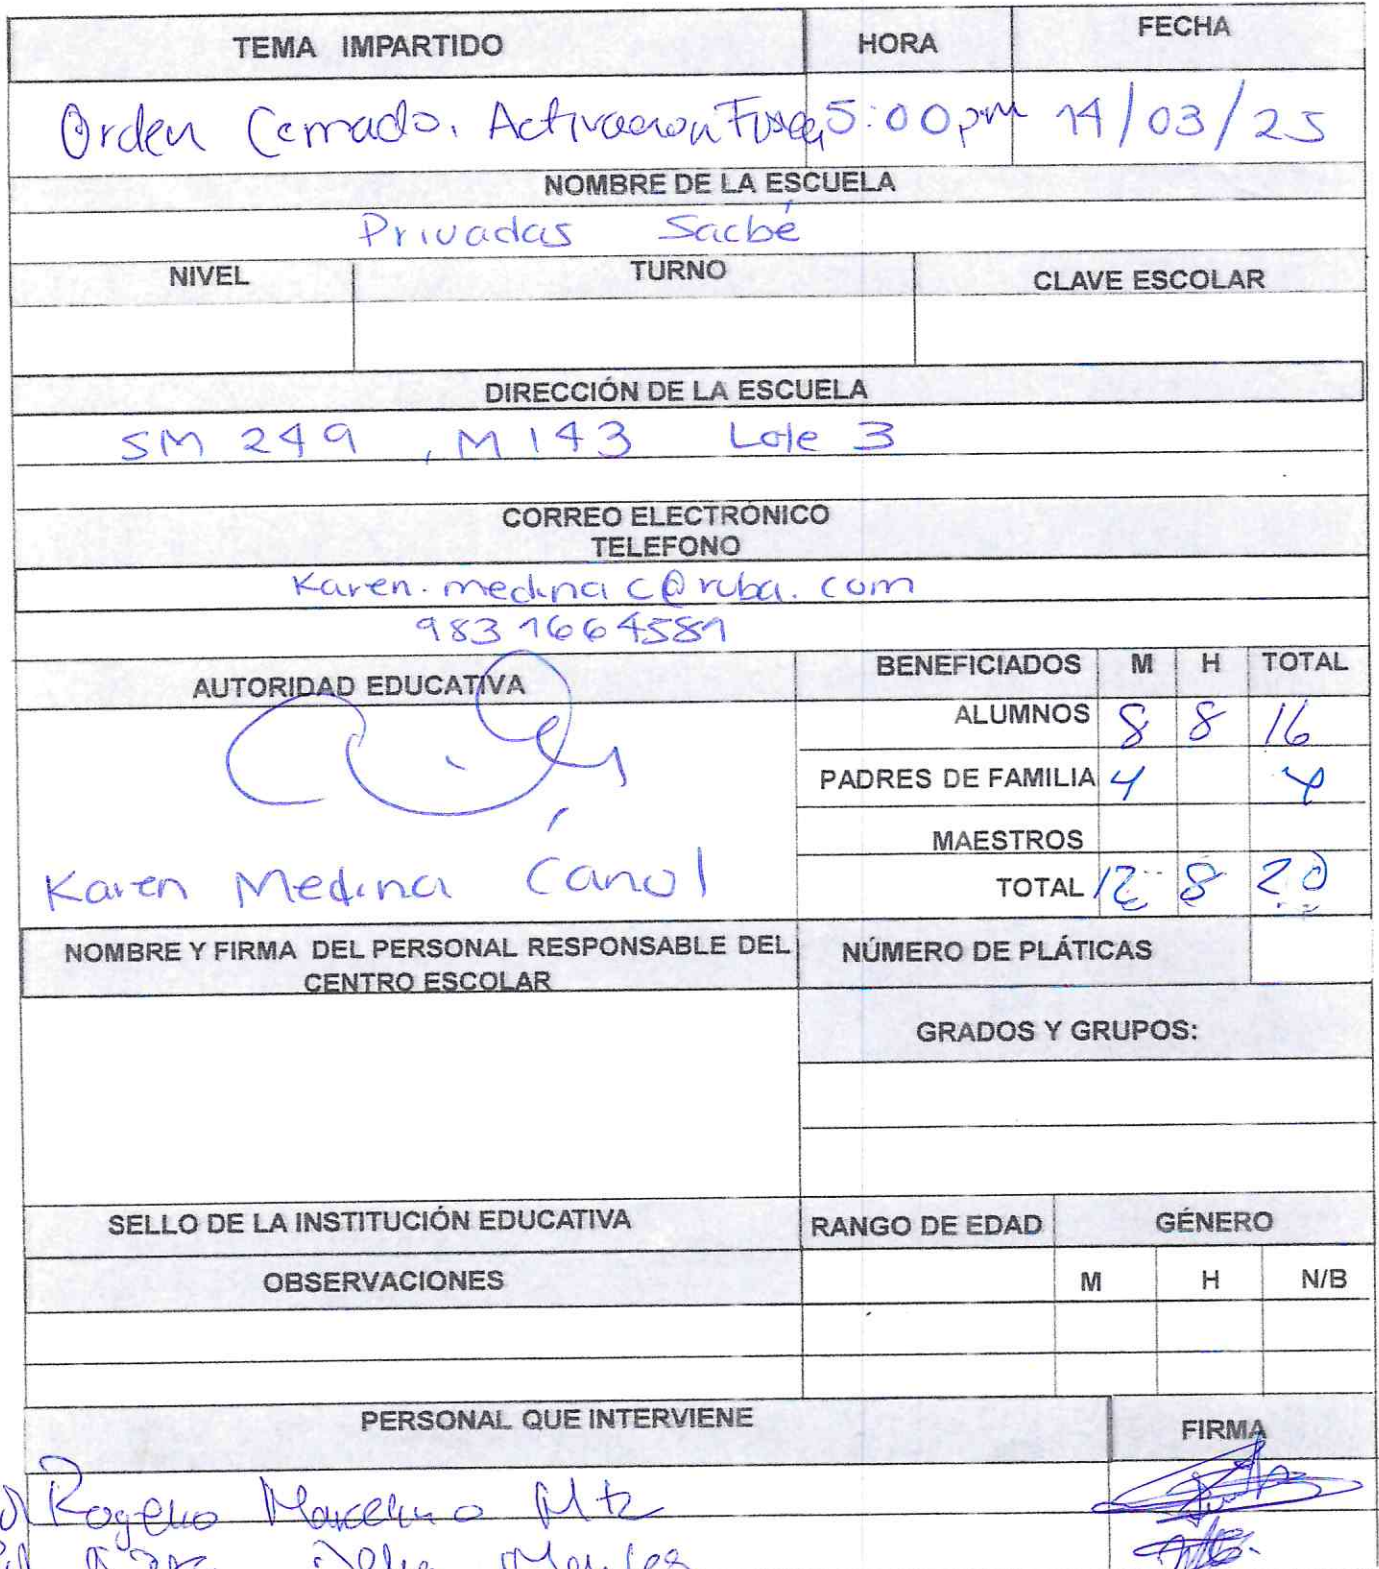 TEMA IMPARTIDO HORA FECHA
Orden Cerrado. Activacion Fisica 5:00 pm 14/03/25
NOMBRE DE LA ESCUELA
Privadas Sacbé
NIVEL TURNO CLAVE ESCOLAR
DIRECCIÓN DE LA ESCUELA
SM 249 , M 143 Lote 3
CORREO ELECTRÓNICO
TELEFONO
Karen.medina c@ruba.com
983 1666 4581
AUTORIDAD EDUCATIVA BENEFICIADOS M H TOTAL
ALUMNOS 8 8 16
PADRES DE FAMILIA 4 4
MAESTROS
TOTAL 12 8 20
Karen Medina Canul
NOMBRE Y FIRMA DEL PERSONAL RESPONSABLE DEL CENTRO ESCOLAR NÚMERO DE PLÁTICAS
GRADOS Y GRUPOS:
SELLO DE LA INSTITUCIÓN EDUCATIVA RANGO DE EDAD GÉNERO
OBSERVACIONES M H N/B
PERSONAL QUE INTERVIENE FIRMA
Rogelio Marcelino Mtz